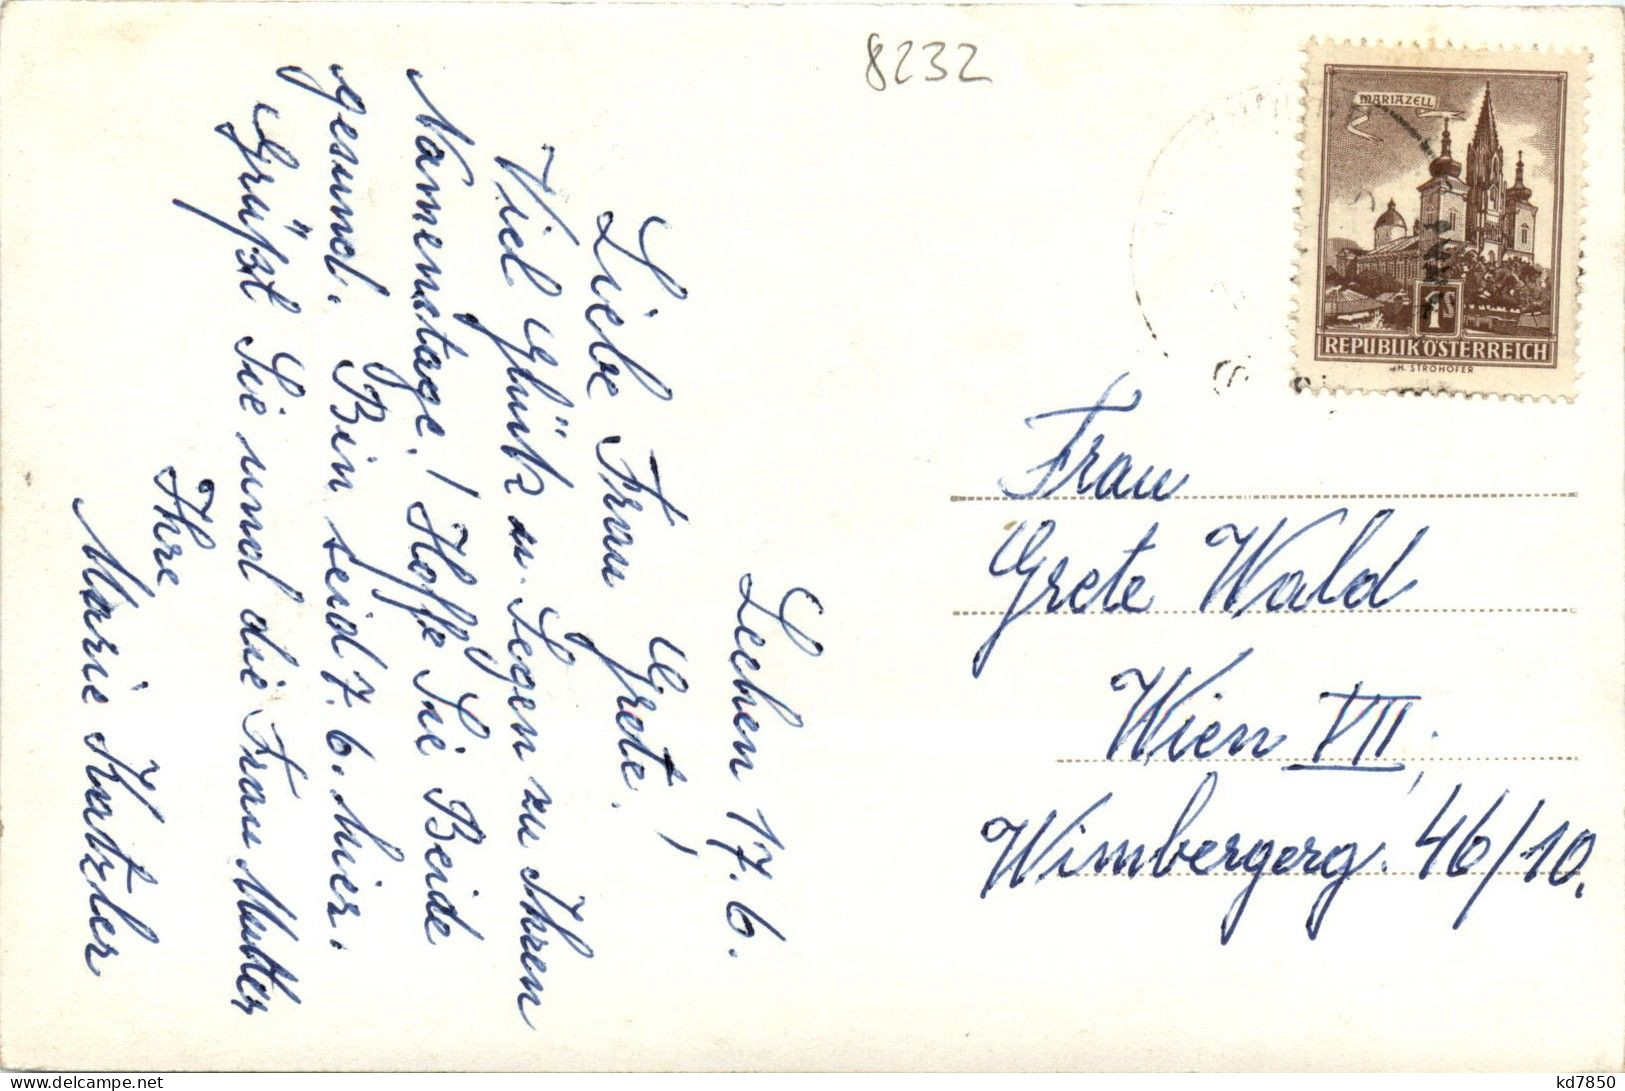 8232
MARIAZELL
1S
REPUBLIK ÖSTERREICH
H. STROHOFER
Lechen 17. 6.
Liebe Frau Grete!
Viel Glück u. Segen zu Ihren
Namenstage! Hoffe Sie Beide
gesund. Bin seid 7. 6. hier.
Grüßt Sie und die Frau Mutter
Ihre
Marie Katzler
Frau
Grete Wald
Wien VII,
Wimbergerg. 46/10.
delcampe.net
kd7850